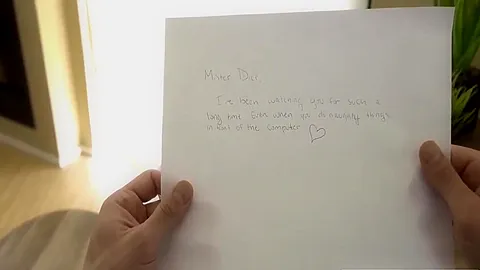 Mister Doc
I've been watching you for such a
long time. Even when you do naughty things
in front of the computer